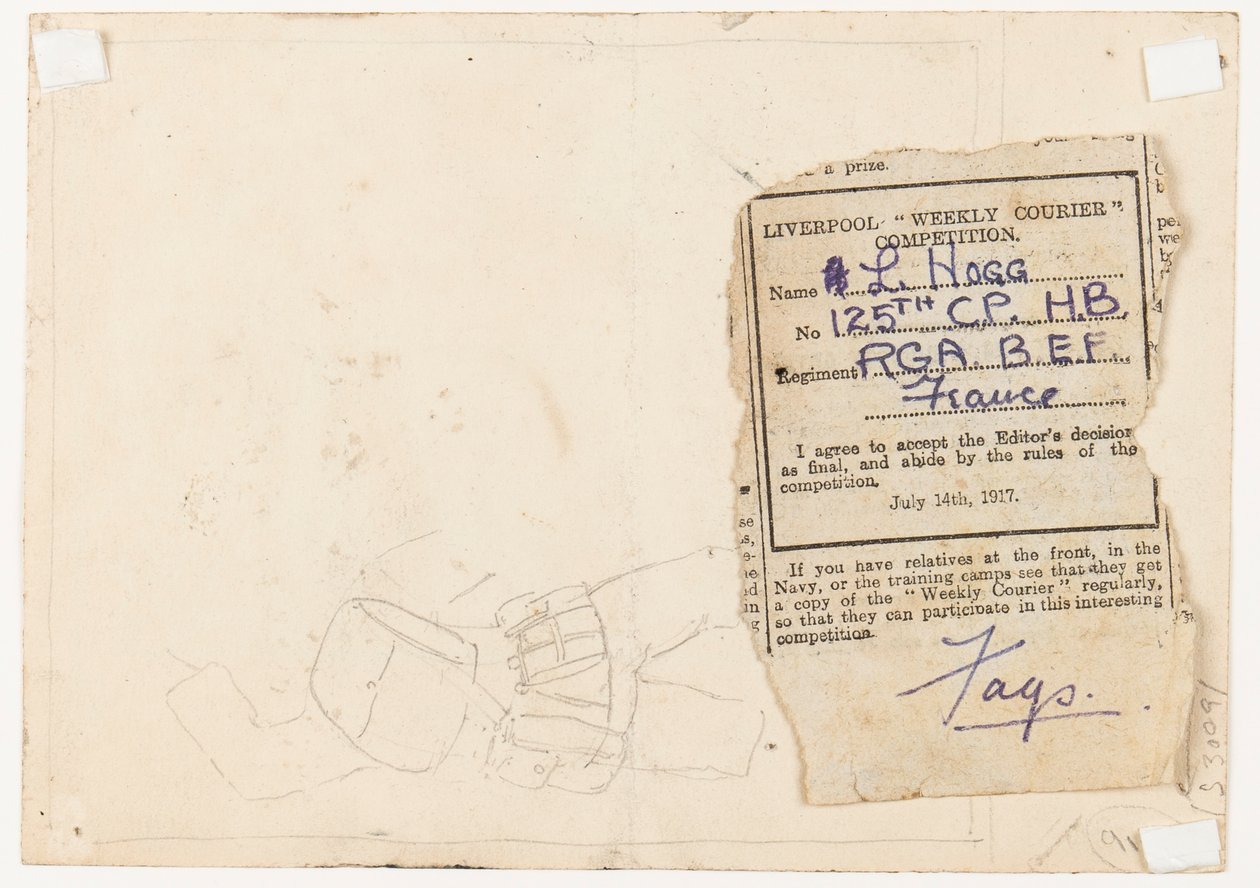 a prize.
LIVERPOOL "WEEKLY COURIER"
COMPETITION.
Name L. HOGG
No 125TH CP. H.B.
Regiment RGA. B.E.F.
France
I agree to accept the Editor's decision
as final, and abide by the rules of the
competition.
July 14th, 1917.
If you have relatives at the front, in the
Navy, or the training camps see that they get
a copy of the "Weekly Courier" regularly,
so that they can participate in this interesting
competition.
Fags.